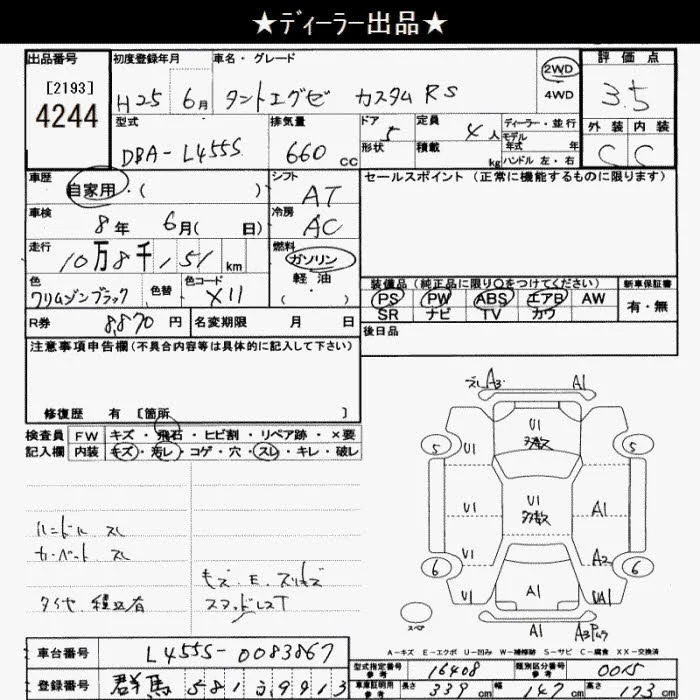 ★ディーラー出品★
出品番号
[2193]
4244
初度登録年月
H25 6月
車名・グレード
タントエグゼ カスタム RS
2WD
4WD
評価点
3.5
外装 内装
C C
型式
DBA-L455S
排気量
660 cc
ドア
5
形状
定員
4人
積載
kg
ディーラー・並行
モデル
年式 年
ハンドル 左・右
車歴
自家用・( )
シフト
AT
セールスポイント (正常に機能するものに限ります)
車検
8年 6月( 日)
冷房
AC
走行
10万8千151km
燃料
ガソリン
軽油
( )
色
クリムゾンブラック
色替
色コード
X11
装備品 (純正品に限り○をつけてください)
PS PW ABS エアB AW
SR ナビ TV カワ
新車保証書
有・無
R券
8,870円
名変期限 月 日
後日品
注意事項申告欄(不具合内容等は具体的に記入して下さい)
修復歴 有 [箇所 ]
検査員
記入欄
FW キズ・飛石・ヒビ割・リペア跡・×要
内装 キズ・汚レ・コゲ・穴・スレ・キレ・破レ
ハンドル スレ
カーペット スレ
タイヤ 積込有
スレA3 A1
U1
多数
5 5
U1 U1
U1 U1 A1
多数
U1 A2
6 6
U1 A1 UA1
スペア
A1 A3
A-キズ E-エクボ U-凹み W-補修跡 S-サビ C-腐食 XX-交換済
車台番号
L455S-0083867
登録番号
群馬 581
型式指定番号
参考
16408
類別区分番号
参考
0015
車庫証明用
参考
長さ 339cm 幅 147cm 高さ 173cm